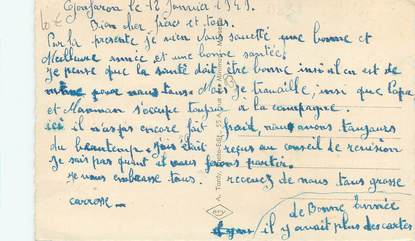 Gonfaron le 12 Janvier 1949.
10 €
Bien cher frères et tous.
Par la presente je vien vous souaetté une bonne et
Meilleure année et une bonne santée.
Je pense que la santé doit être bonne insi il en est de
même pour nous tous. Moi je travaille, insi que Papa
et Manman s'occupe toujour a la campagne.
ici il n'as pas encore fait froid, nous avons toujours
du beautemps. j'ais était reçus au conseil de revision
Je sait pas quant et nous ferons partir.
Je vous embrasse tous. recevez de nous tous grosse
carresse.
de Bonne Année
il y avait plus des cartes
A. Tardy,